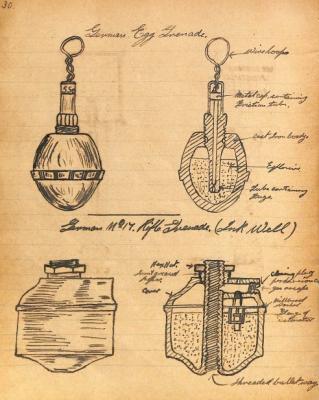 30.
German Egg Grenade.
Wire loops
Metal cap, containing
friction tube.
Cast Iron body
Explosive
Tube containing
fuze.
German No 17. Rifle Grenade. (Ink Well)
Cover
Closing plug
Threaded bullet way